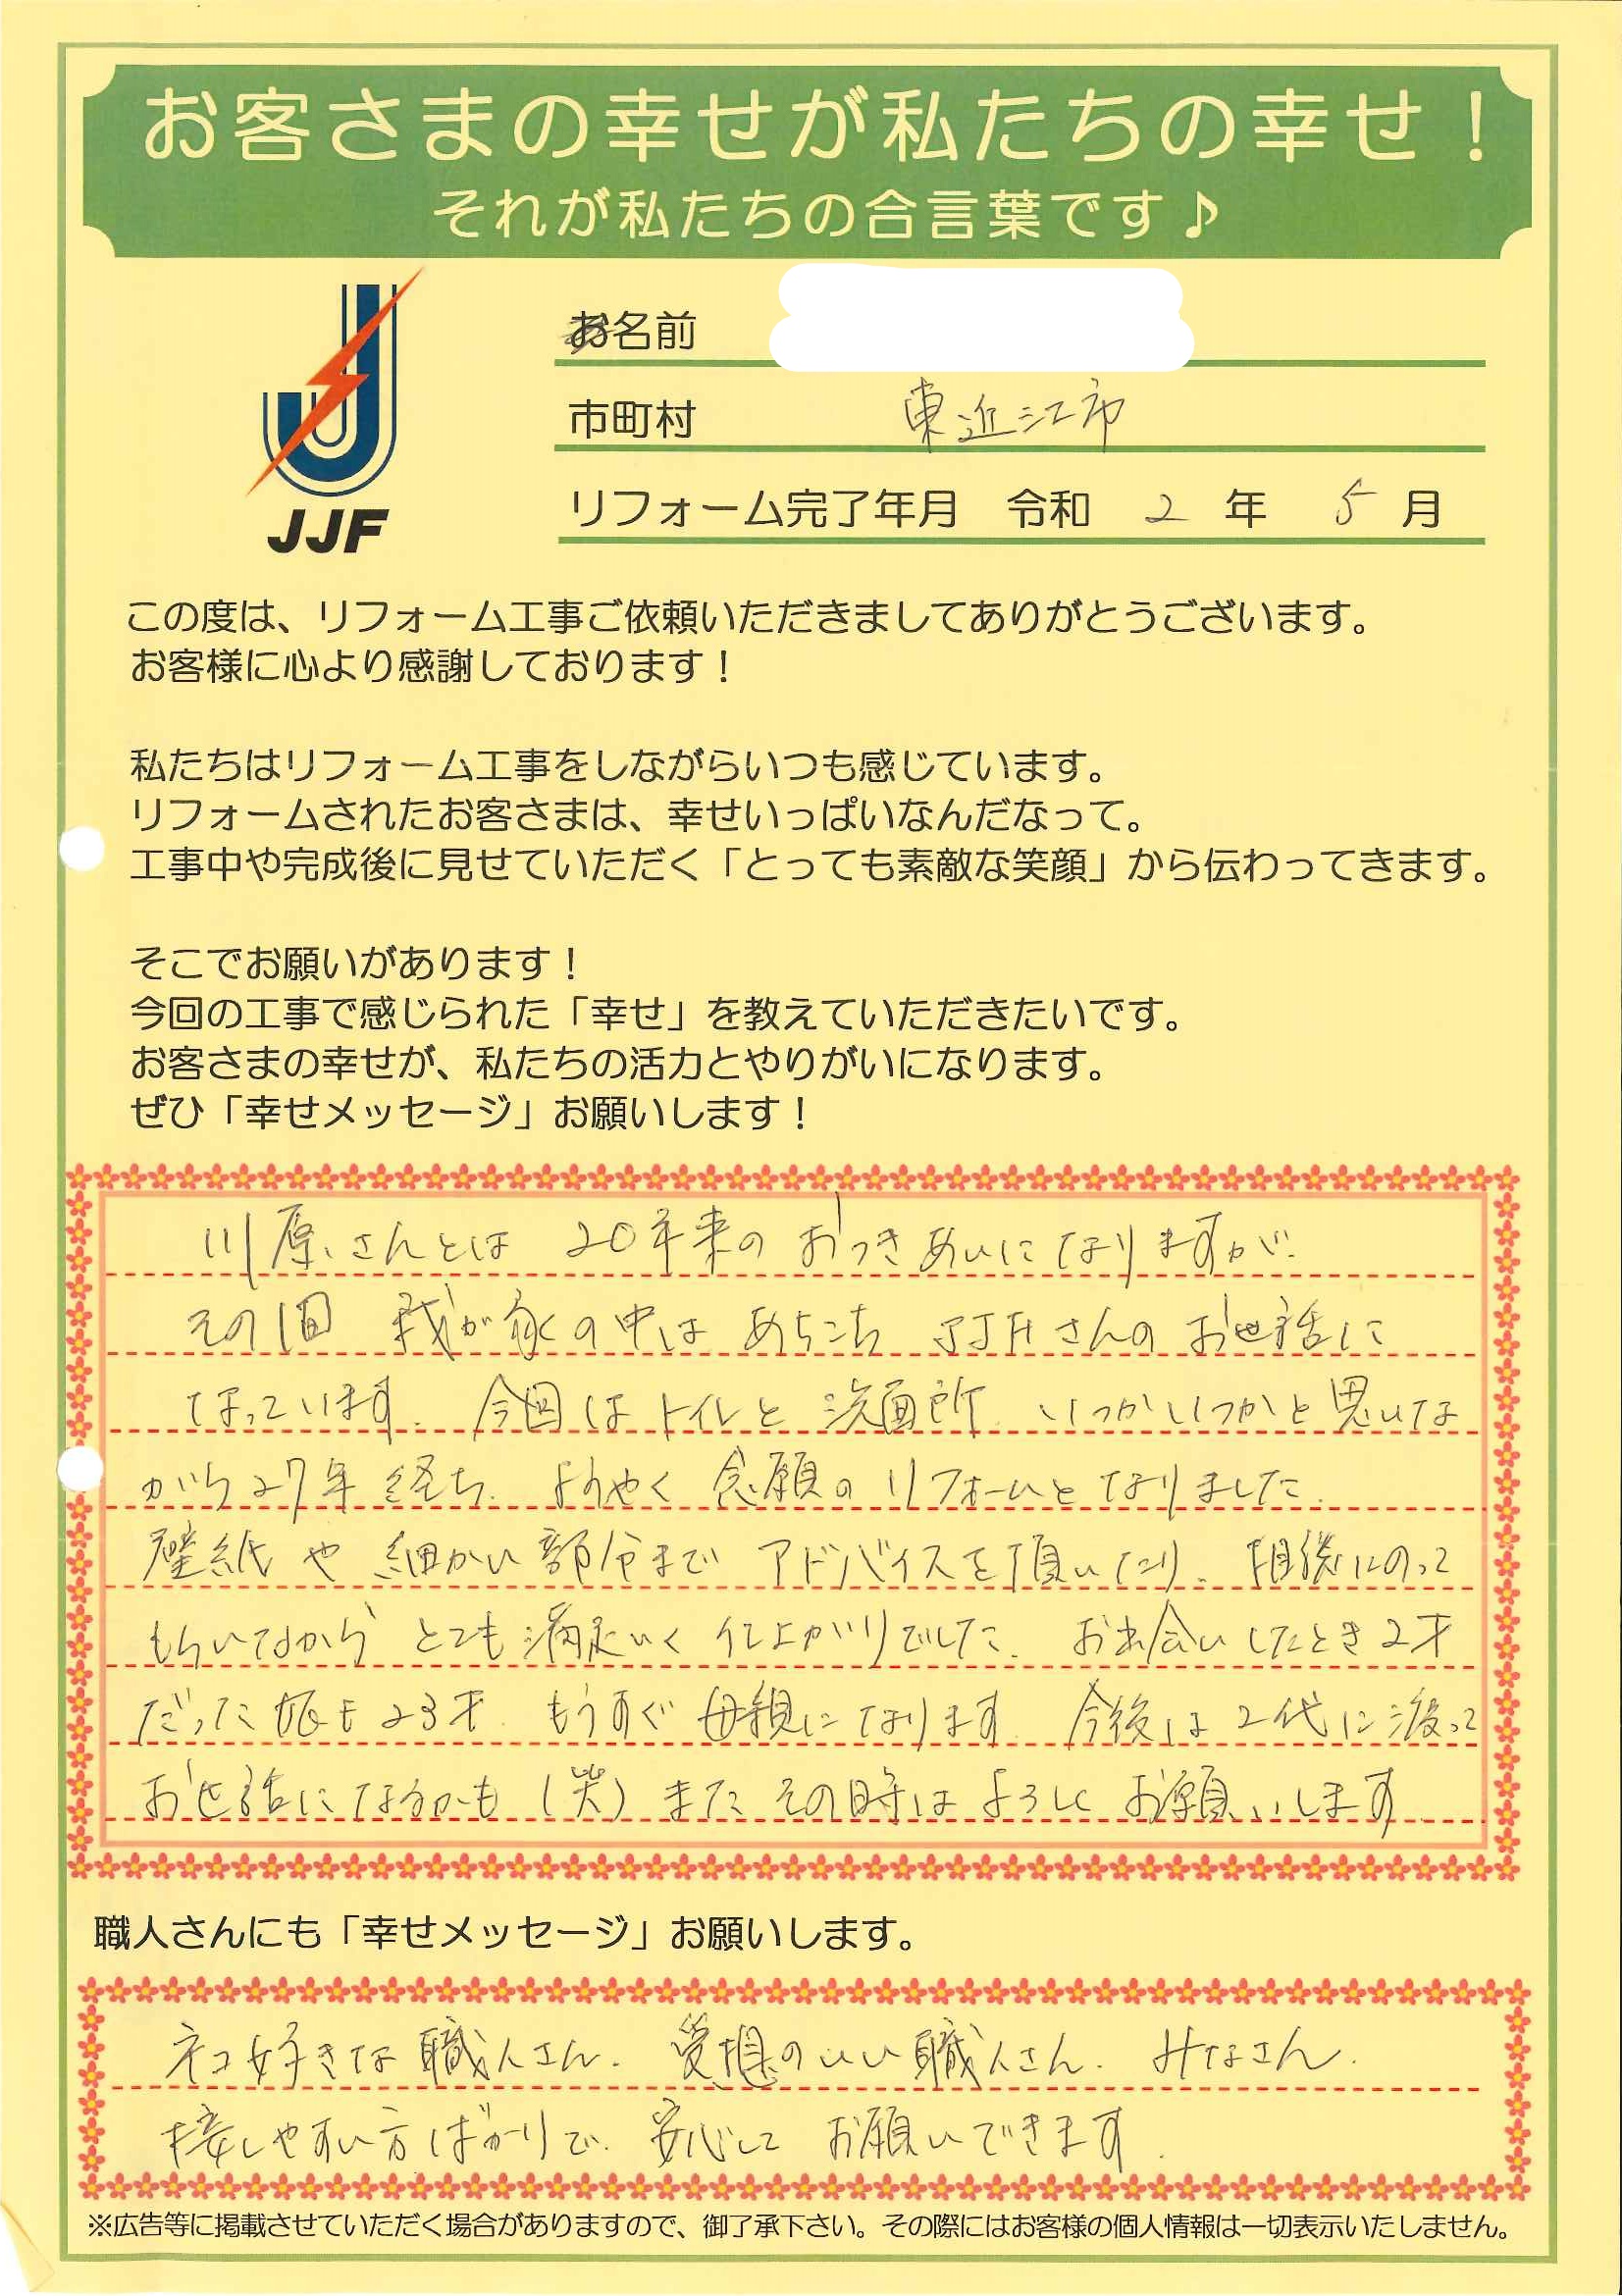 お客さまの幸せが私たちの幸せ！
それが私たちの合言葉です♪
JJF
お名前
市町村 東近江市
リフォーム完了年月 令和 2 年 5 月
この度は、リフォーム工事ご依頼いただきましてありがとうございます。
お客様に心より感謝しております！
私たちはリフォーム工事をしながらいつも感じています。
リフォームされたお客さまは、幸せいっぱいなんだなって。
工事中や完成後に見せていただく「とっても素敵な笑顔」から伝わってきます。
そこでお願いがあります！
今回の工事で感じられた「幸せ」を教えていただきたいです。
お客さまの幸せが、私たちの活力とやりがいになります。
ぜひ「幸せメッセージ」お願いします！
川原さんとは 20年来のおつきあいになりますが、
その間 我が家の中は あちこち JJFさんの お世話に
なっています。今回はトイレと 洗面所、いつかいつかと思いな
がら27年 経ち、ようやく 念願の リフォームとなりました。
壁紙や 細かい部分まで アドバイスを頂いたり、相談にのって
もらいながら とても満足いく 仕上がりでした。お出会いしたとき2才
だった娘も23才。もうすぐ 母親になります。今後は 2代に渡って
お世話になるかも（笑）また その時は よろしく お願いします。
職人さんにも「幸せメッセージ」お願いします。
ネコ好きな 職人さん、愛想のいい職人さん、みなさん、
接しやすい方ばかりで、安心して お願いできます。
※広告等に掲載させていただく場合がありますので、御了承下さい。その際にはお客様の個人情報は一切表示いたしません。